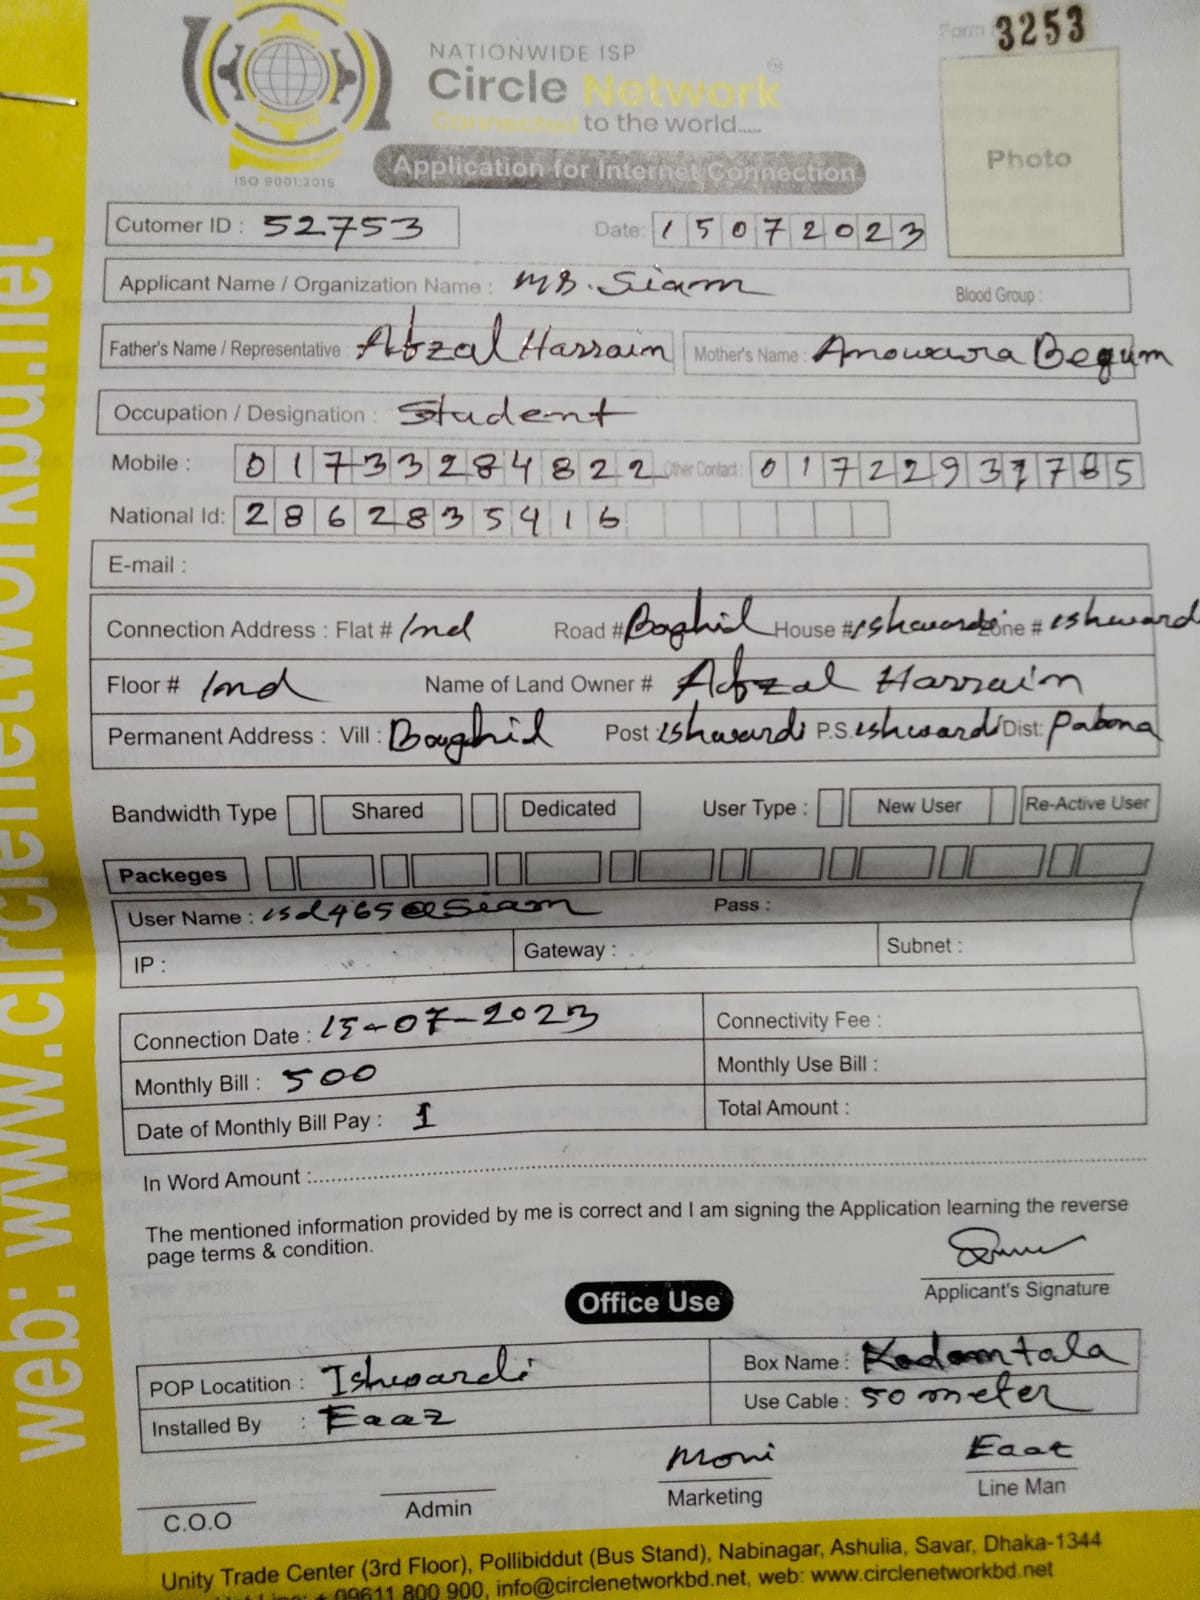 Form 3253
NATIONWIDE ISP
Circle Network™
Connected to the world.....
ISO 9001:2015
Application for Internet Connection
Photo
Cutomer ID : 52753 Date: 15072023
Applicant Name / Organization Name : MD. Siam Blood Group :
Father's Name / Representative : Afzal Hossain Mother's Name : Anowara Begum
Occupation / Designation : Student
Mobile : 01733284822 Other Contact : 01722937785
National Id: 2862835416
E-mail :
Connection Address : Flat # Ind Road # Baghil House # ishwardi Zone # ishwardi
Floor # Ind Name of Land Owner # Afzal Hossain
Permanent Address : Vill : Baghil Post : ishwardi P.S. ishwardi Dist: Pabna
Bandwidth Type Shared Dedicated User Type : New User Re-Active User
Packeges
User Name : isd465@Siam Pass :
IP : Gateway : Subnet :
Connection Date : 15-07-2023 Connectivity Fee :
Monthly Bill : 500 Monthly Use Bill :
Date of Monthly Bill Pay : 1 Total Amount :
In Word Amount :
The mentioned information provided by me is correct and I am signing the Application learning the reverse
page terms & condition.
Applicant's Signature
Office Use
POP Locatition : Ishwardi Box Name : Kadamtala
Installed By : Eaaz Use Cable : 50 meter
Moni
C.O.O Admin Marketing Line Man
Unity Trade Center (3rd Floor), Pollibiddut (Bus Stand), Nabinagar, Ashulia, Savar, Dhaka-1344
09611 800 900, info@circlenetworkbd.net, web: www.circlenetworkbd.net
web: www.circlenetworkbd.net